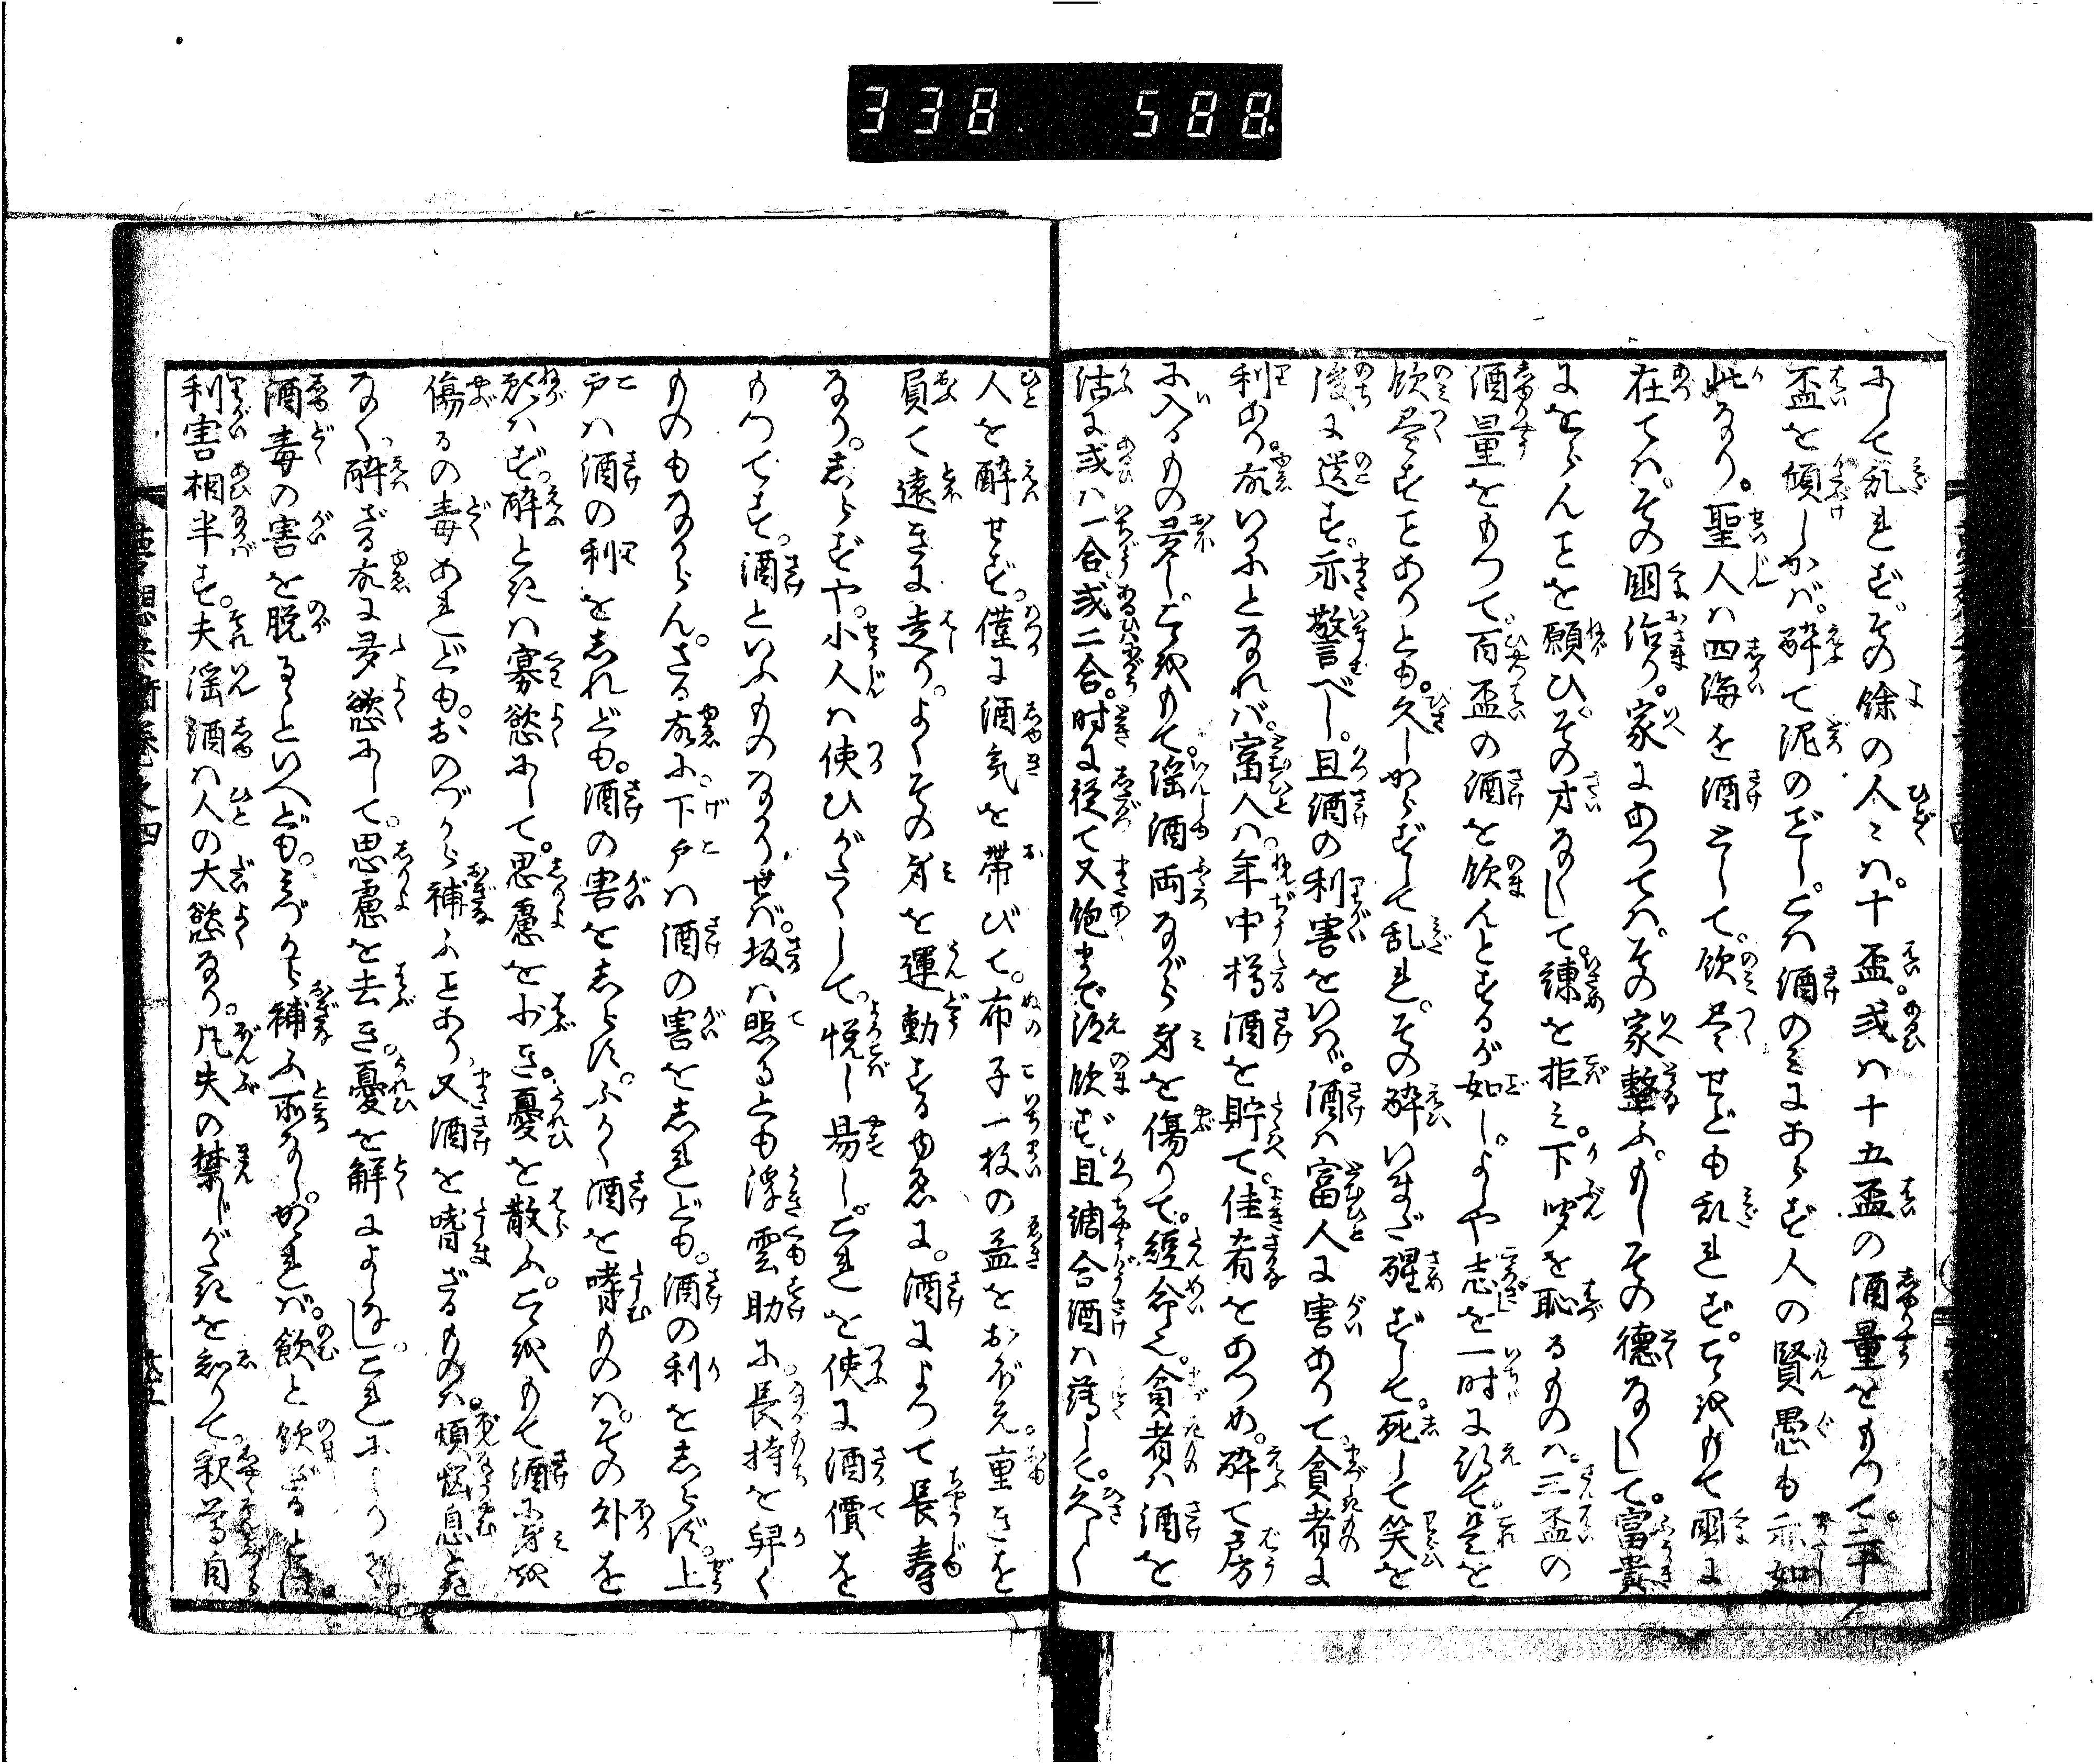 338 588
にして乱れず。その餘の人々は。十盃。或は十五盃の酒量をもつて。二十
盃を傾しかば。酔て泥のごとし。こは酒のみにあらず人の賢愚も亦如
此なり。聖人は四海を酒として。飲尽せども乱れず。こゝをもて国に
在ては。その国治り。家にあつては。その家整ふ。もしその徳なくして。富貴
にをらんことを願ひ。その才なくして。諫を拒み。下問を恥るものは。三盃の
酒量をもつて。百盃の酒を飲んとするが如し。よしや志を一時に得て是を
飲尽すことありとも。久しからずして乱れ。その酔いまだ醒ずして。死して笑を
後に遺す。亦警むべし。且酒の利害をいはゞ。酒は富人に害ありて。貧者に
利あり。故いかにとなれば。富人は。年中樽酒を貯て。佳肴をあつめ。酔て房
に入るもの多し。こゝをもて。淫酒両ながら身を傷りて。短命也。貧者は酒を
沽に或は一合或二合。時に従て又飽まで得飲ず。且調合酒は薄して。久しく
人を酔せず。僅に酒気を帯びて。布子一枚の益をおぼえ。重きを
負て遠きに走り。よくその身を運動するゆゑに。酒によつて長寿
なり。しらずや。小人は使ひがたくして。悦し易し。これを使に酒價を
もつてす。酒といふものなかりせば。坂は照るとも浮雲助に。長持を舁く
ものもなからん。さる故に。下戸は酒の害をしれども。酒の利をしらず。上
戸は酒の利をしれども。酒の害をしらず。ふかく酒を嗜ものは。その外を
願はず。酔ときは寡慾にして。思慮を省き。憂を散ふ。こゝをもて酒に身を
傷るの毒あれども。おのづから補ふことあり。又酒を嗜ざるものは。煩悩息とき
なく。酔ざる故に多慾にして。思慮を去き。憂を解によしなし。これにより
酒毒の害を脱るゝといへども。みづから補ふ所なし。かゝれば。飲と飲ざるとは。
利害相半す。夫淫酒は人の大慾なり。凡夫の禁じがたきを知りて。釈尊自